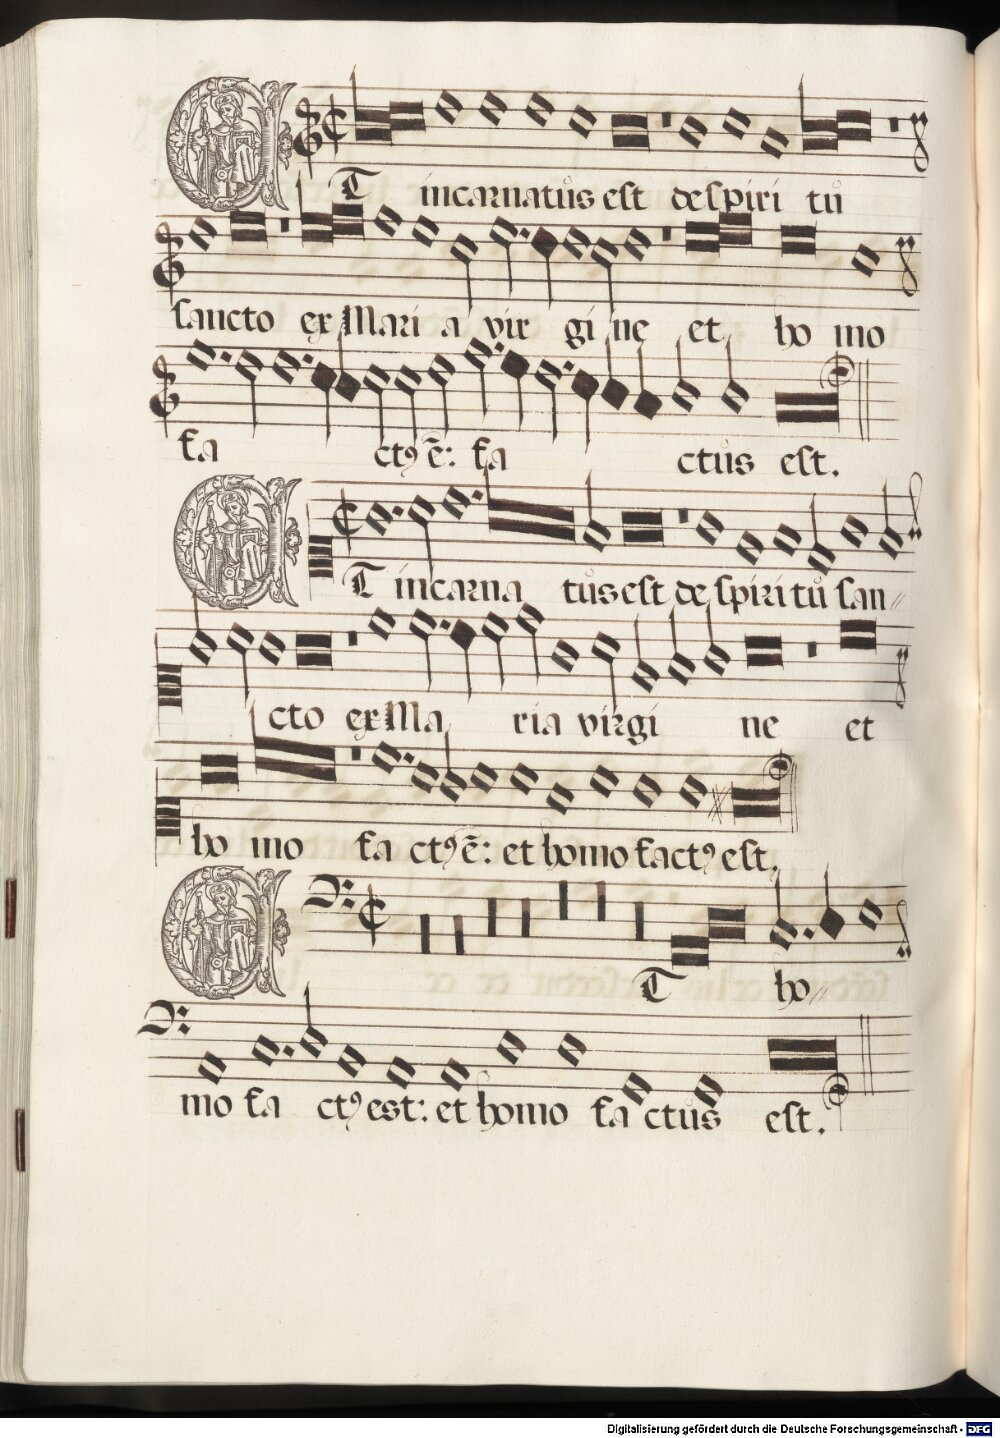 ET incarnatus est de spiri tu
sancto ex Mari a vir gi ne et ho mo
fa ctꝰ ē: fa ctus est.
ET incarna tus est de spiritu san〃
cto ex Ma ria virgi ne et
ho mo fa ctꝰ ē: et homo factꝰ est.
ET ho〃
mo fa ctꝰ est: et homo fa ctus est.
Digitalisierung gefördert durch die Deutsche Forschungsgemeinschaft - DFG